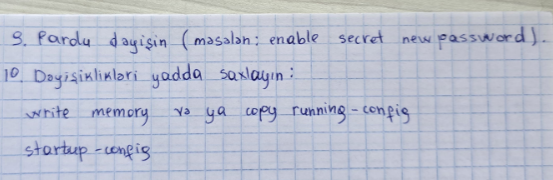 9. Parolu dəyişin (məsələn: enable secret newpassword).
10. Dəyişiklikləri yadda saxlayın:
write memory və ya copy running-config
startup-config